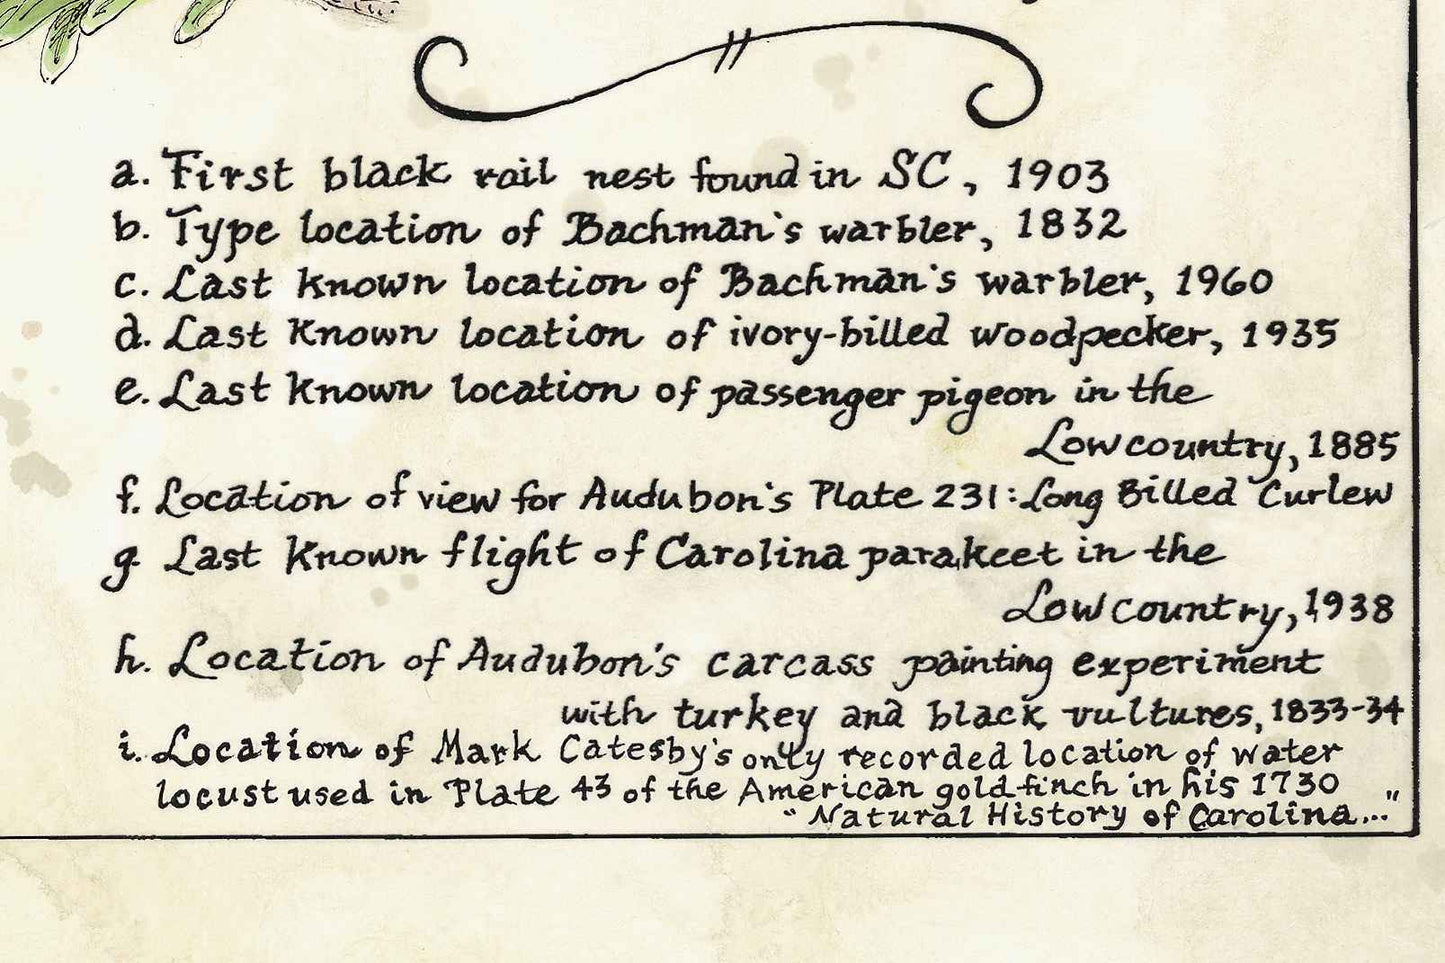 a. First black rail nest found in SC, 1903
b. Type location of Bachman's warbler, 1832
c. Last known location of Bachman's warbler, 1960
d. Last Known location of ivory-billed woodpecker, 1935
e. Last Known location of passenger pigeon in the
Lowcountry, 1885
f. Location of view for Audubon's Plate 231: Long Billed Curlew
g. Last Known flight of Carolina parakeet in the
Lowcountry, 1938
h. Location of Audubon's carcass painting experiment
with turkey and black vultures, 1833-34
i. Location of Mark Catesby's only recorded location of water
locust used in Plate 43 of the American goldfinch in his 1730
"Natural History of Carolina..."